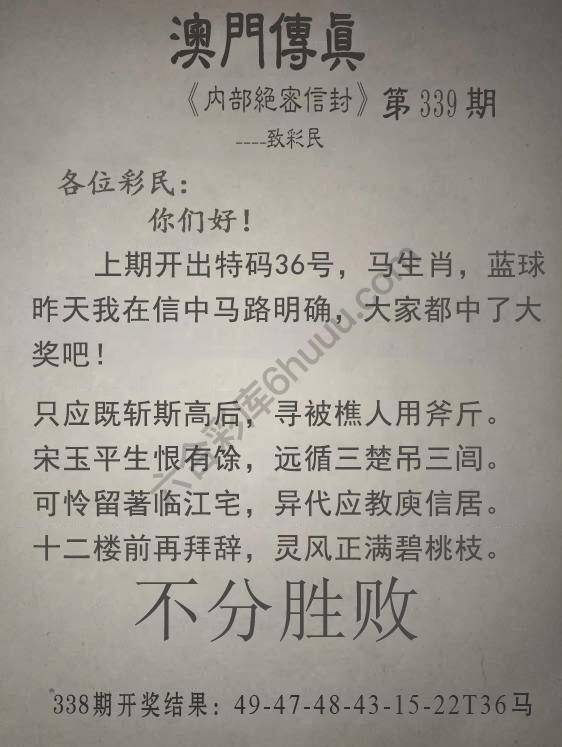 澳門傳眞
《内部絕密信封》第339期
----致彩民
各位彩民：
你们好！
上期开出特码36号，马生肖，蓝球
昨天我在信中马路明确，大家都中了大
奖吧！
只应既斩斯高后，寻被樵人用斧斤。
宋玉平生恨有馀，远循三楚吊三闾。
可怜留著临江宅，异代应教庾信居。
十二楼前再拜辞，灵风正满碧桃枝。
不分胜败
338期开奖结果：49-47-48-43-15-22T36马
六合彩库6huuu.com